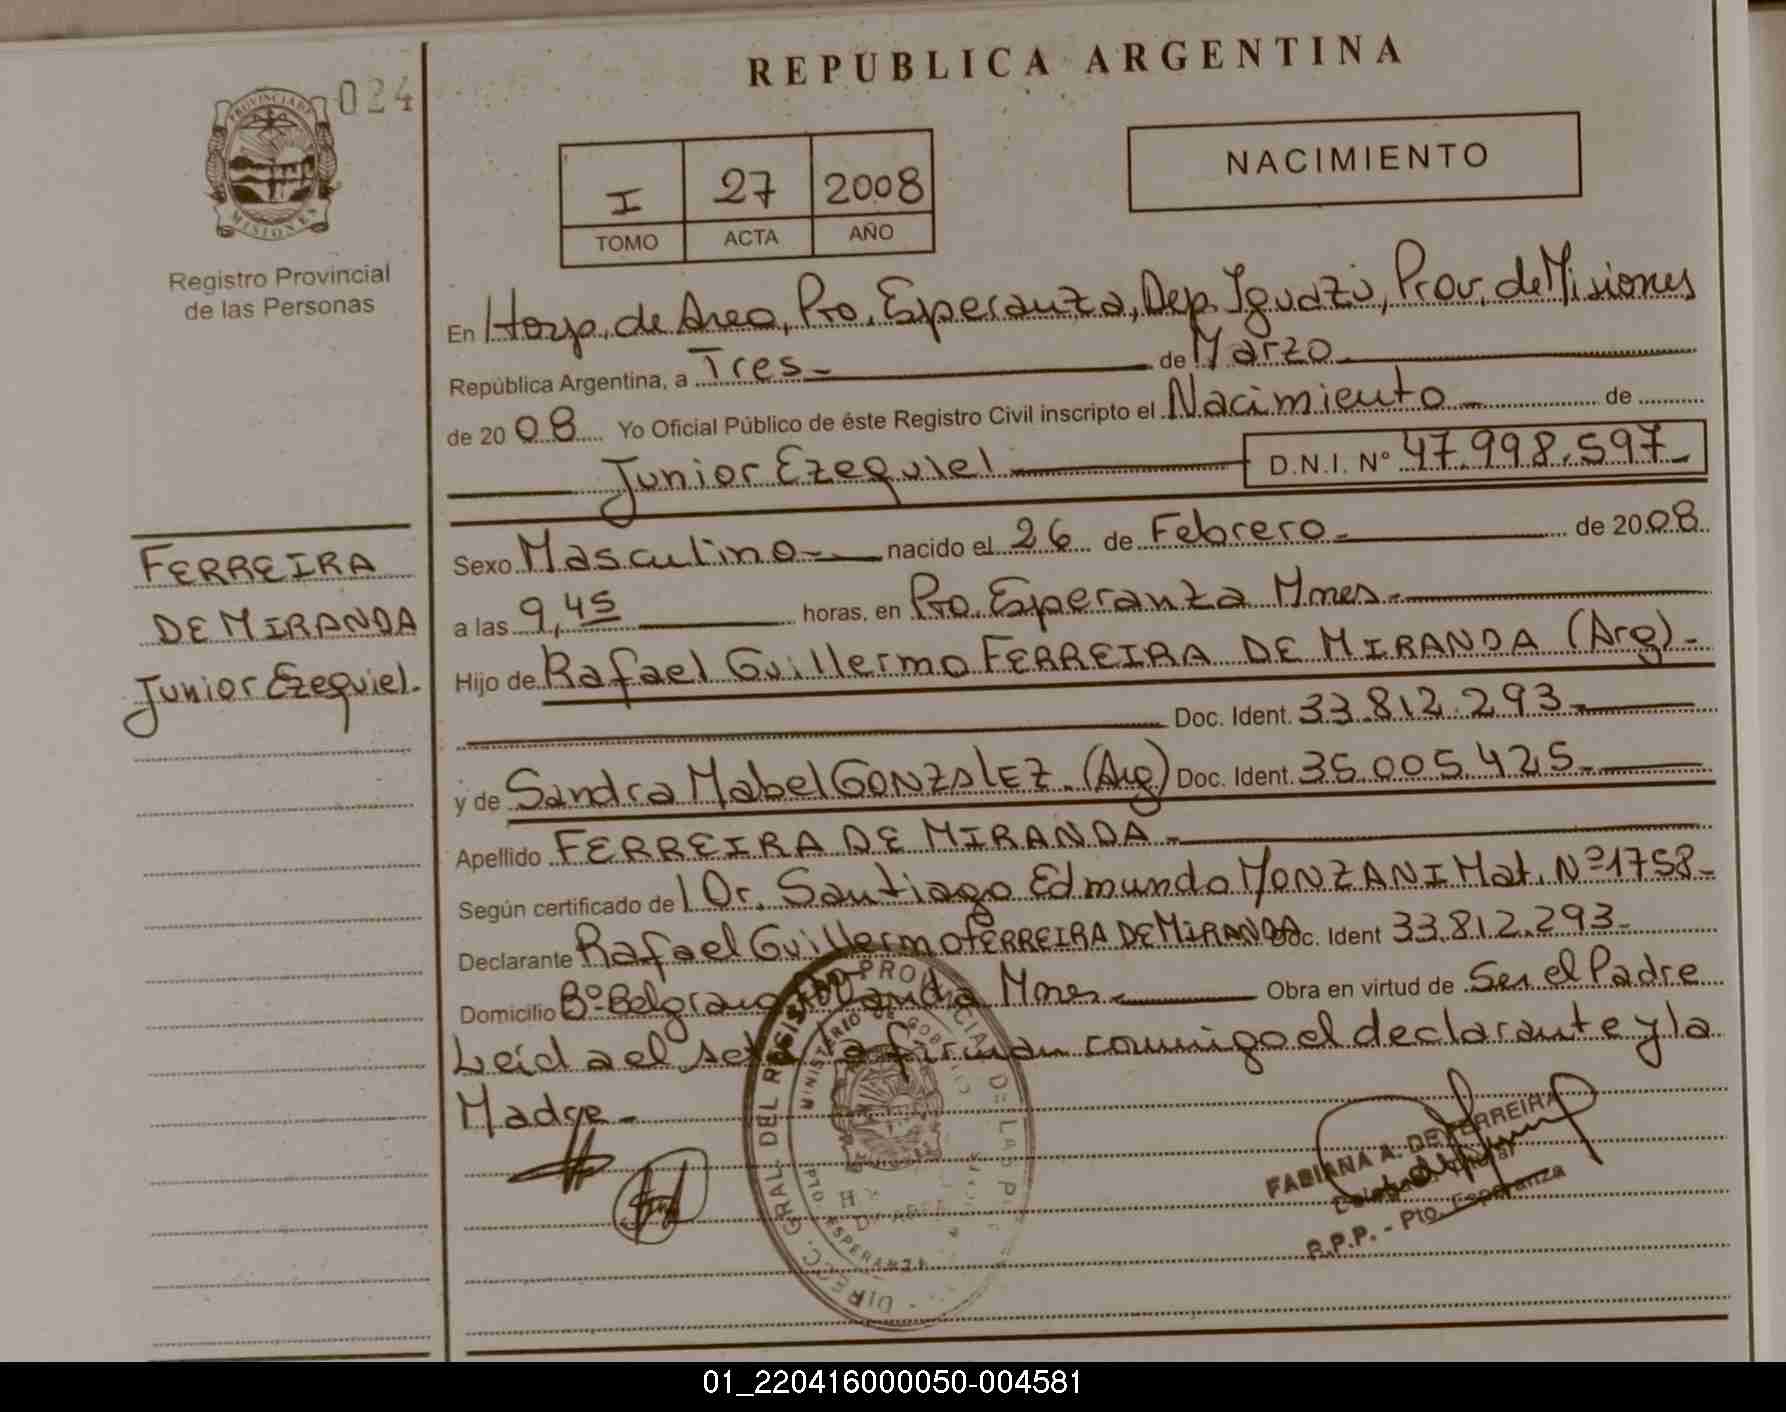 024
PROVINCIA DE
MISIONES
Registro Provincial
de las Personas
FERREIRA
DE MIRANDA
Junior Ezequiel.
REPUBLICA ARGENTINA
I 27 2008
TOMO ACTA AÑO
NACIMIENTO
En Hosp. de Area, Pto. Esperanza, Dep. Iguazú, Prov. de Misiones
República Argentina, a Tres de Marzo
de 20 08 Yo Oficial Público de éste Registro Civil inscripto el Nacimiento de
Junior Ezequiel D.N.I. N° 47.998.597
Sexo Masculino nacido el 26 de Febrero de 20 08
a las 9,45 horas, en Pto. Esperanza Mnes
Hijo de Rafael Guillermo FERREIRA DE MIRANDA (Arg)
Doc. Ident. 33.812.293
y de Sandra Mabel GONZALEZ. (Arg) Doc. Ident. 35.005.425
Apellido FERREIRA DE MIRANDA
Según certificado del Dr. Santiago Edmundo MONZANI Mat. Nº1758
Declarante Rafael Guillermo FERREIRA DE MIRANDA Doc. Ident 33.812.293
Domicilio Bº Belgrano Wanda Mnes Obra en virtud de Ser el Padre
Leida el acta la firman conmigo el declarante y la
Madre
DIREC. GRAL. DEL REGISTRO PROVINCIAL DE LAS
MINISTERIO DE GOBIERNO
PTO. ESPERANZA
FABIANA A. DE FERREIRA
R.P.P. - Pto. Esperanza
01_220416000050-004581